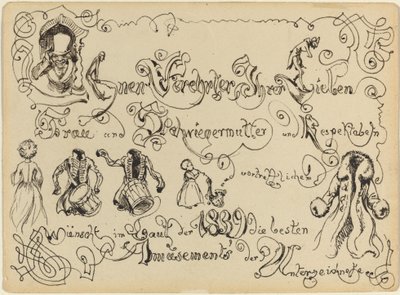 Ihnen Verehrter, Ihrer Lieben
Frau und Schwiegermutter und Respektabeln
vortrefflichen
Wünscht im Lauf der 1839 die besten
Amüsements der Unterzeichnete